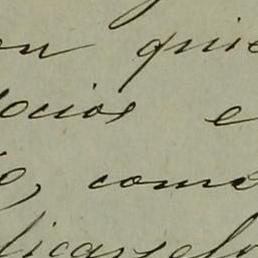 on quie
ocios e
o, come
licarselo